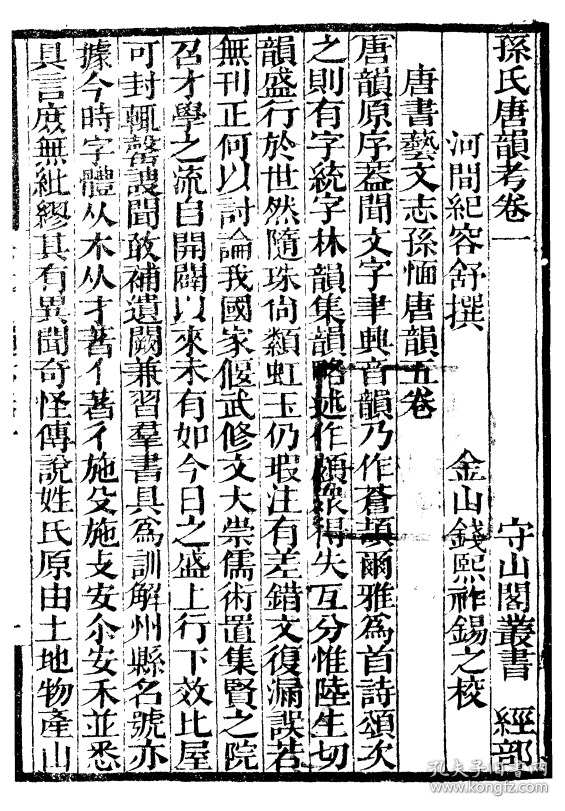 孫氏唐韻考卷一 守山閣叢書 經部
河間紀容舒撰 金山錢熙祚錫之校
唐書藝文志孫愐唐韻五卷
唐韻原序葢聞文字聿興音韻乃作蒼頡爾雅為首詩頌次
之則有字統字林韻集韻略述作頗衆得失互分惟陸生切
韻盛行於世然隨珠尙纇虹玉仍瑕注有差錯文復漏誤若
無刊正何以討論我國家偃武修文大崇儒術置集賢之院
召才學之流自開闢以來未有如今日之盛上行下效比屋
可封輒罄謏聞敢補遺闕兼習羣書具為訓解州縣名號亦
據今時字體从木从才著亻著彳施殳施攴安尒安禾並悉
具言庻無紕繆其有異聞奇怪傳說姓氏原由土地物產山
孔夫子旧书网
www.kongfz.com